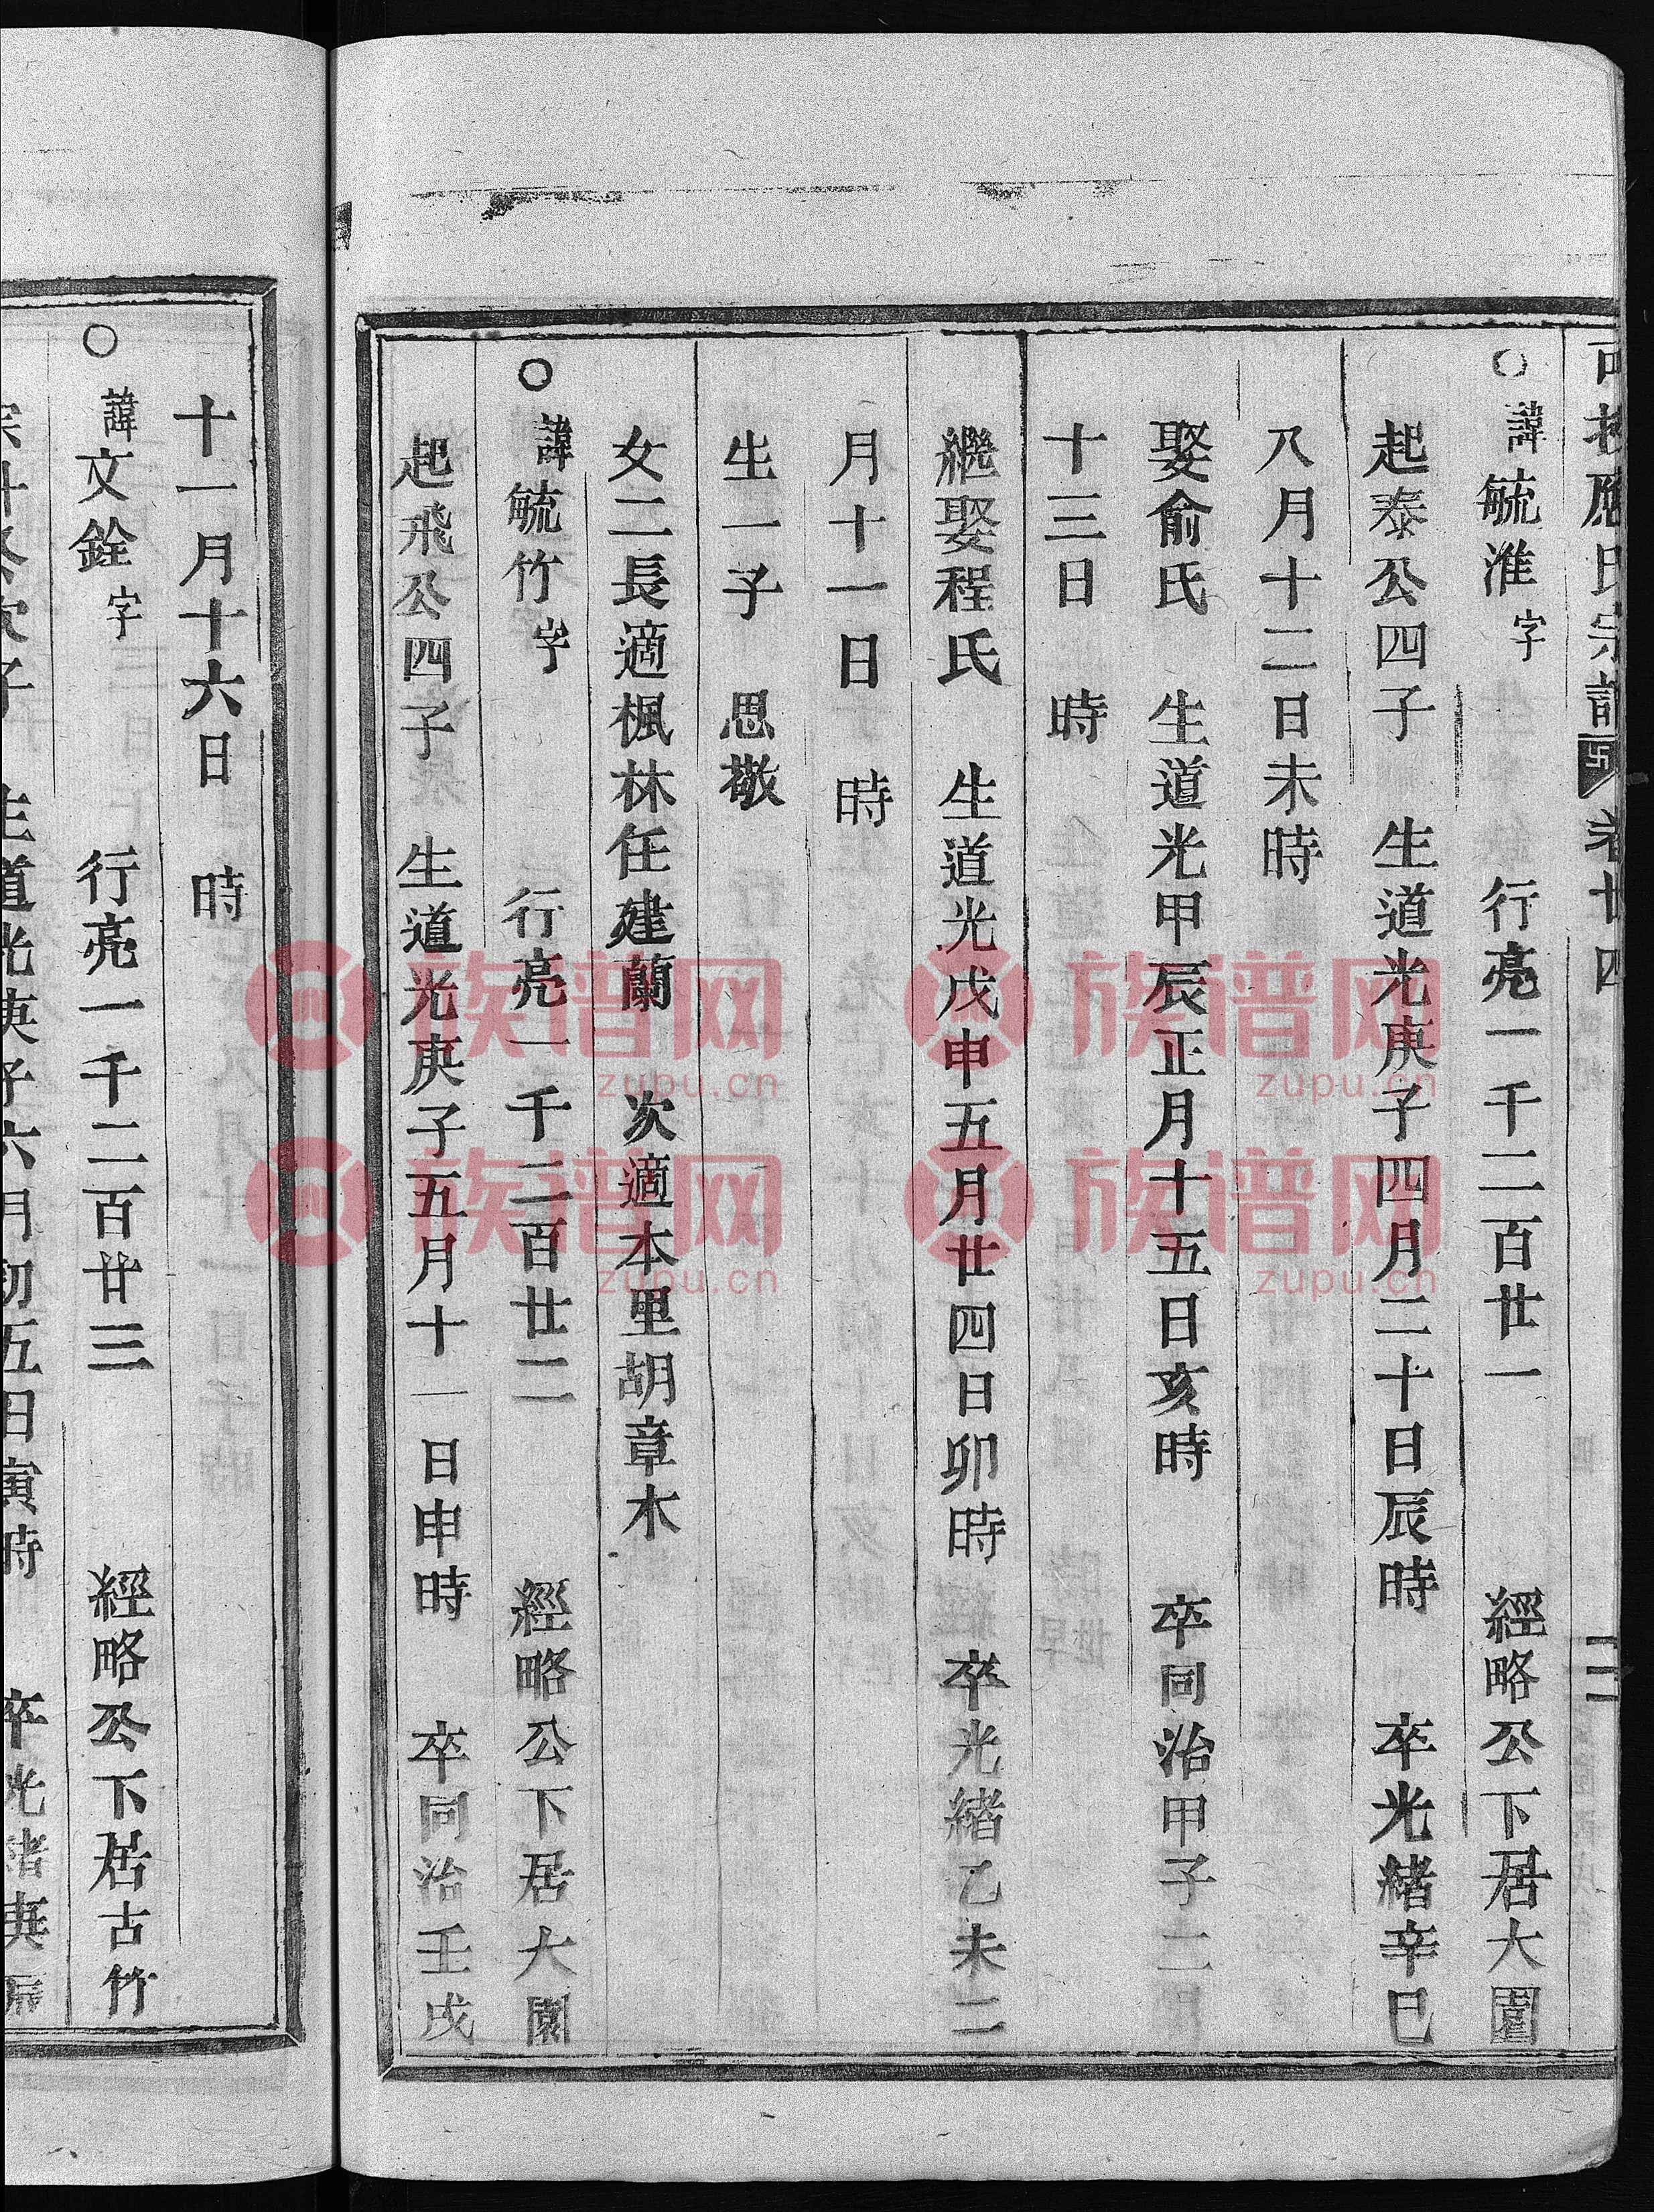 氏宗譜 卷廿四
○ 諱毓淮字 行亮一千二百廿一 經略公下居大園
起泰公四子 生道光庚子四月二十日辰時 卒光緒辛巳
八月十二日未時
娶俞氏 生道光甲辰正月十五日亥時 卒同治甲子二月
十三日 時
繼娶程氏 生道光戊申五月廿四日卯時 卒光緒乙未二
月十一日 時
生一子 思敬
女二長適楓林任建蘭 次適本里胡章木
○ 諱毓竹字 行亮一千二百廿二 經略公下居大園
起飛公四子 生道光庚子五月十一日申時 卒同治壬戌
十一月十六日 時
○ 諱文銓字 行亮一千二百廿三 經略公下居古竹
次子 生道光庚子六月初五日寅時 卒光緒庚辰
族谱网
zupu.cn
族谱网
zupu.cn
族谱网
zupu.cn
族谱网
zupu.cn